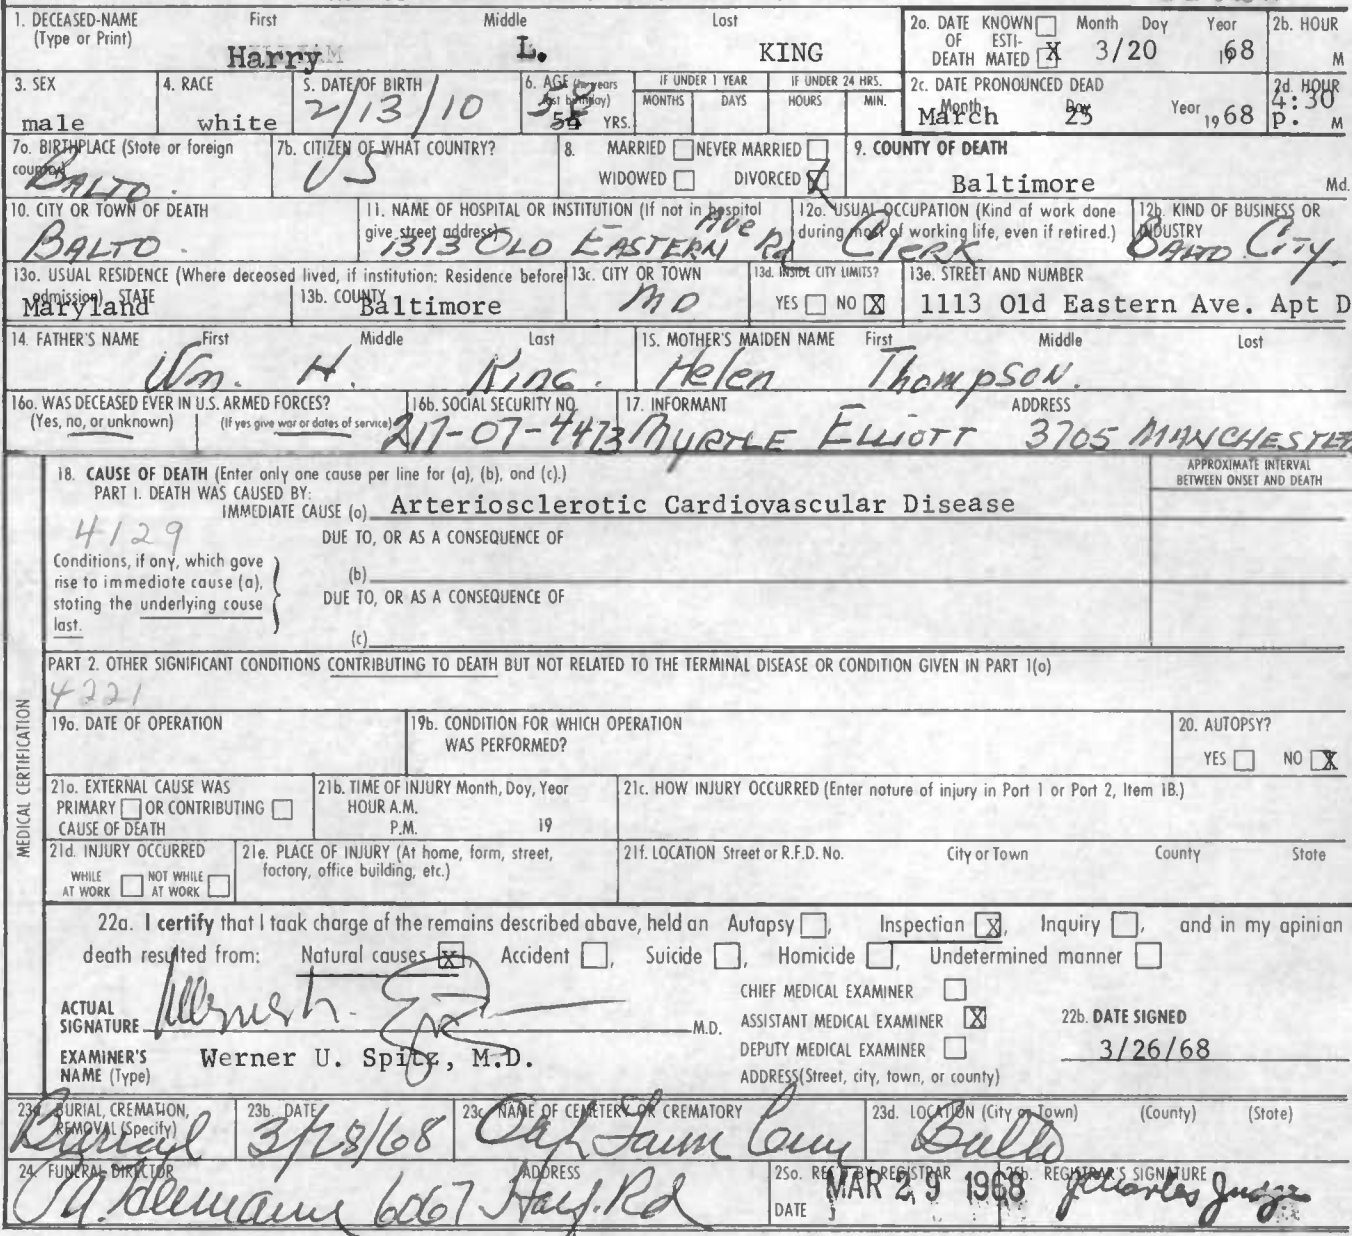 1. DECEASED-NAME First Middle Last
(Type or Print)
Harry L. KING
2a. DATE KNOWN Month Day Year
OF ESTI-
DEATH MATED X 3/20 1968
2b. HOUR
M
3. SEX
male
4. RACE
white
5. DATE OF BIRTH
2/13/10
6. AGE (In years
last birthday)
58
YRS.
IF UNDER 1 YEAR
MONTHS DAYS
IF UNDER 24 HRS.
HOURS MIN.
2c. DATE PRONOUNCED DEAD
Month Day Year
March 25 1968
2d. HOUR
4:30
P. M
7a. BIRTHPLACE (State or foreign
country)
BALTO.
7b. CITIZEN OF WHAT COUNTRY?
US
8. MARRIED NEVER MARRIED
WIDOWED DIVORCED X
9. COUNTY OF DEATH
Baltimore Md.
10. CITY OR TOWN OF DEATH
BALTO.
11. NAME OF HOSPITAL OR INSTITUTION (If not in hospital
give street address)
1313 OLD EASTERN AVE Rd
12a. USUAL OCCUPATION (Kind of work done
during most of working life, even if retired.)
Clerk
12b. KIND OF BUSINESS OR
INDUSTRY
BALTO City.
13a. USUAL RESIDENCE (Where deceased lived, if institution: Residence before
admission) STATE
Maryland
13b. COUNTY
Baltimore
13c. CITY OR TOWN
MD
13d. INSIDE CITY LIMITS?
YES NO X
13e. STREET AND NUMBER
1113 Old Eastern Ave. Apt D
14. FATHER'S NAME First Middle Last
Wm. H. King.
15. MOTHER'S MAIDEN NAME First Middle Last
Helen Thompson.
16a. WAS DECEASED EVER IN U.S. ARMED FORCES?
(Yes, no, or unknown) (If yes give war or dates of service)
16b. SOCIAL SECURITY NO.
217-07-4473
17. INFORMANT ADDRESS
MYRTLE ELLIOTT 3705 MANCHESTER
MEDICAL CERTIFICATION
18. CAUSE OF DEATH (Enter only one cause per line for (a), (b), and (c).)
APPROXIMATE INTERVAL
BETWEEN ONSET AND DEATH
PART I. DEATH WAS CAUSED BY:
IMMEDIATE CAUSE (a) Arteriosclerotic Cardiovascular Disease
4129
DUE TO, OR AS A CONSEQUENCE OF
Conditions, if any, which gave
rise to immediate cause (a),
stating the underlying cause
last.
(b)
DUE TO, OR AS A CONSEQUENCE OF
(c)
PART 2. OTHER SIGNIFICANT CONDITIONS CONTRIBUTING TO DEATH BUT NOT RELATED TO THE TERMINAL DISEASE OR CONDITION GIVEN IN PART 1(a)
4221
19a. DATE OF OPERATION
19b. CONDITION FOR WHICH OPERATION
WAS PERFORMED?
20. AUTOPSY?
YES NO X
21a. EXTERNAL CAUSE WAS
PRIMARY OR CONTRIBUTING
CAUSE OF DEATH
21b. TIME OF INJURY Month, Day, Year
HOUR A.M.
P.M. 19
21c. HOW INJURY OCCURRED (Enter nature of injury in Part 1 or Part 2, Item 18.)
21d. INJURY OCCURRED
WHILE AT WORK NOT WHILE AT WORK
21e. PLACE OF INJURY (At home, farm, street,
factory, office building, etc.)
21f. LOCATION Street or R.F.D. No. City or Town County State
22a. I certify that I took charge of the remains described above, held an Autopsy, Inspection X, Inquiry, and in my opinion
death resulted from: Natural causes X, Accident, Suicide, Homicide, Undetermined manner
ACTUAL
SIGNATURE M.D.
EXAMINER'S
NAME (Type) Werner U. Spitz, M.D.
CHIEF MEDICAL EXAMINER
ASSISTANT MEDICAL EXAMINER X
DEPUTY MEDICAL EXAMINER
ADDRESS(Street, city, town, or county)
22b. DATE SIGNED
3/26/68
23a. BURIAL, CREMATION,
REMOVAL (Specify)
Burial
23b. DATE
3/28/68
23c. NAME OF CEMETERY OR CREMATORY
Oak Lawn Cem
23d. LOCATION (City or Town) (County) (State)
Balto
24. FUNERAL DIRECTOR ADDRESS
6067 Harf. Rd
25a. REC'D BY REGISTRAR
DATE MAR 29 1968
25b. REGISTRAR'S SIGNATURE
Charles Judge